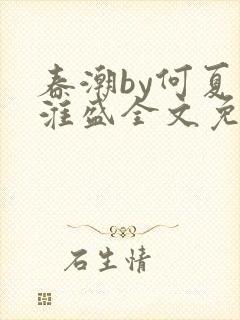 春潮by何夏
淮盛全文免
石生情